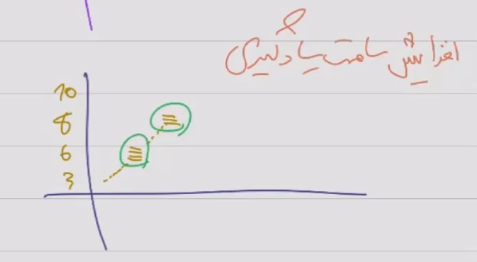 افزایش ساعت یادگیری
10
8
6
3